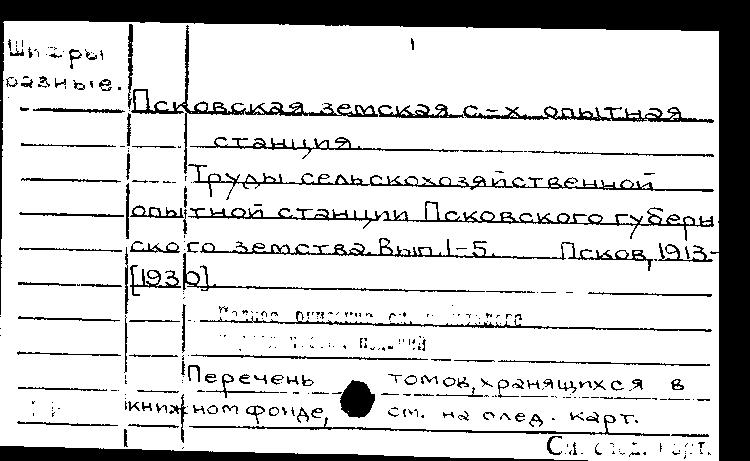 1
Шифры
разные.
Псковская земская с.-х. опытная
станция.
Труды сельскохозяйственной
опытной станции Псковского губерн
ского земства. Вып. 1-5. Псков, 1913-
[1930].
Полное описание см.
Перечень томов, хранящихся в
книжном фонде, см. на след. карт.
См. след. карт.